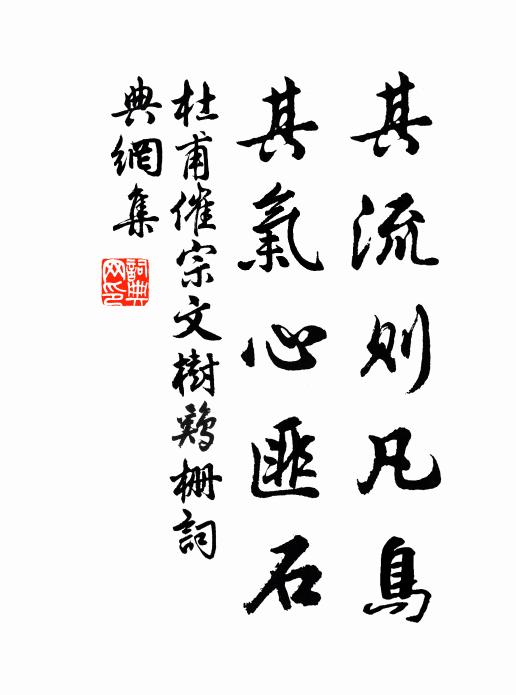 其流则凡鳥
其氣心匪石
杜甫催宗文樹鷄栅詞
典網集
詞典網印